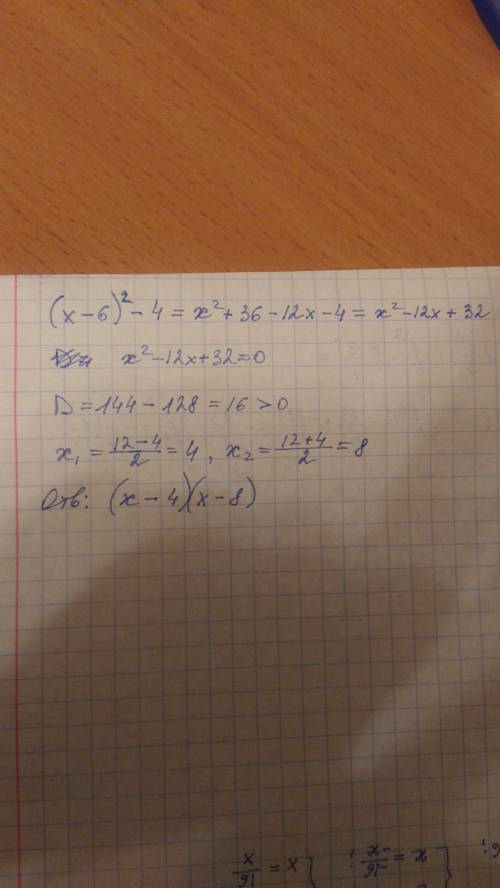 (x-6)² - 4 = x² + 36 - 12x - 4 = x² - 12x + 32
x² - 12x + 32 = 0
D = 144 - 128 = 16 > 0
x₁ = (12-4)/2 = 4, x₂ = (12+4)/2 = 8
Отв: (x - 4)(x - 8)